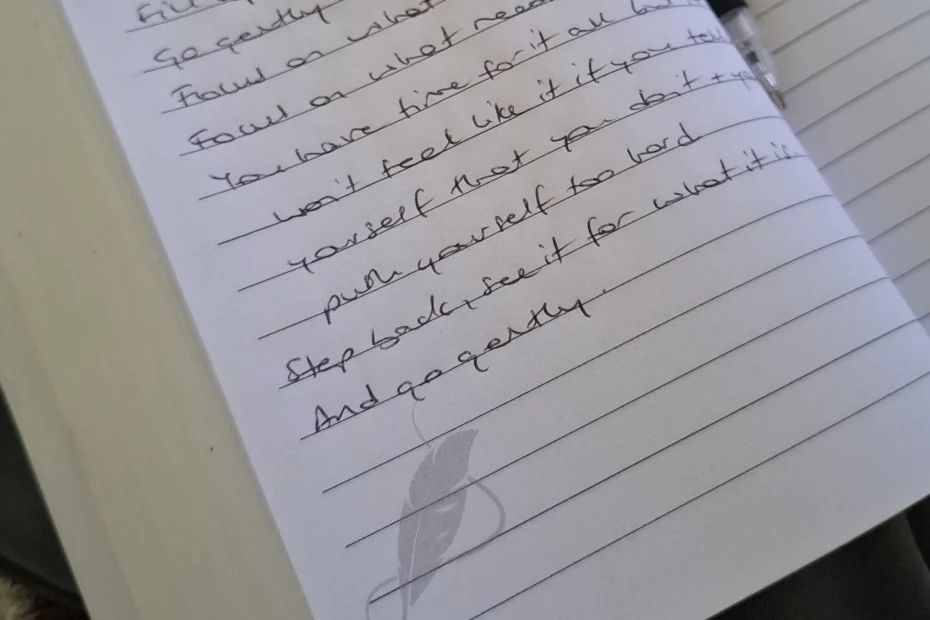 Go gently
Focus on what
Focus on what need
You have time for it all but
won't feel like it if you tell
yourself that you don't + you
push yourself too hard
Step back, see it for what it is.
And go gently.